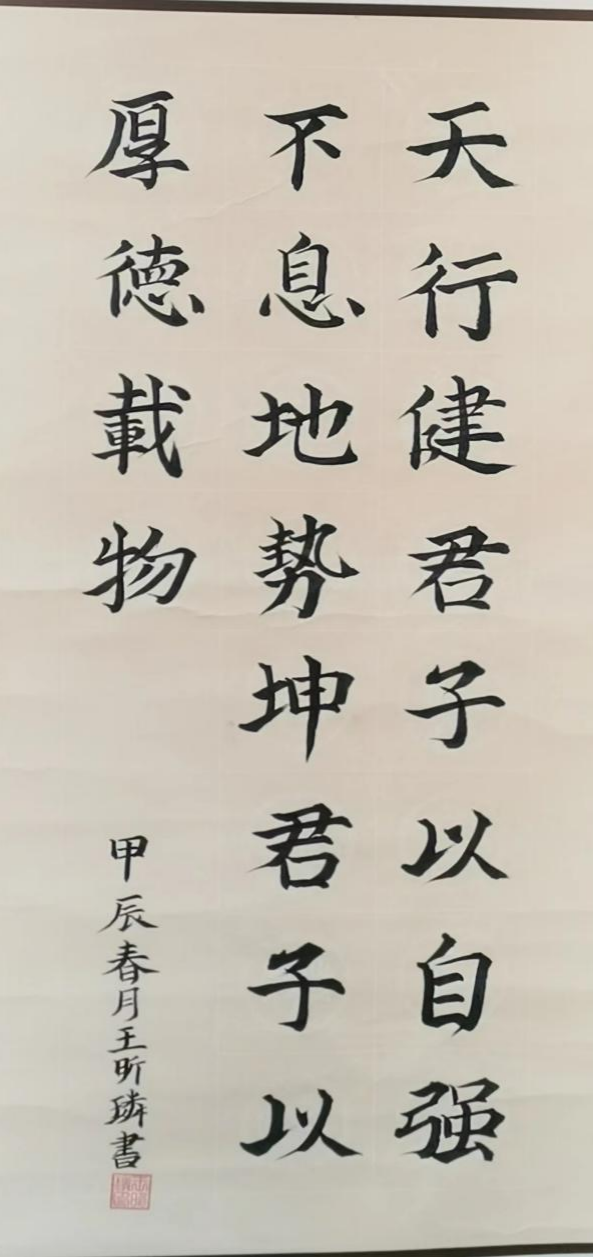 天行健君子以自强
不息地势坤君子以
厚德載物
甲辰春月王昕璘書